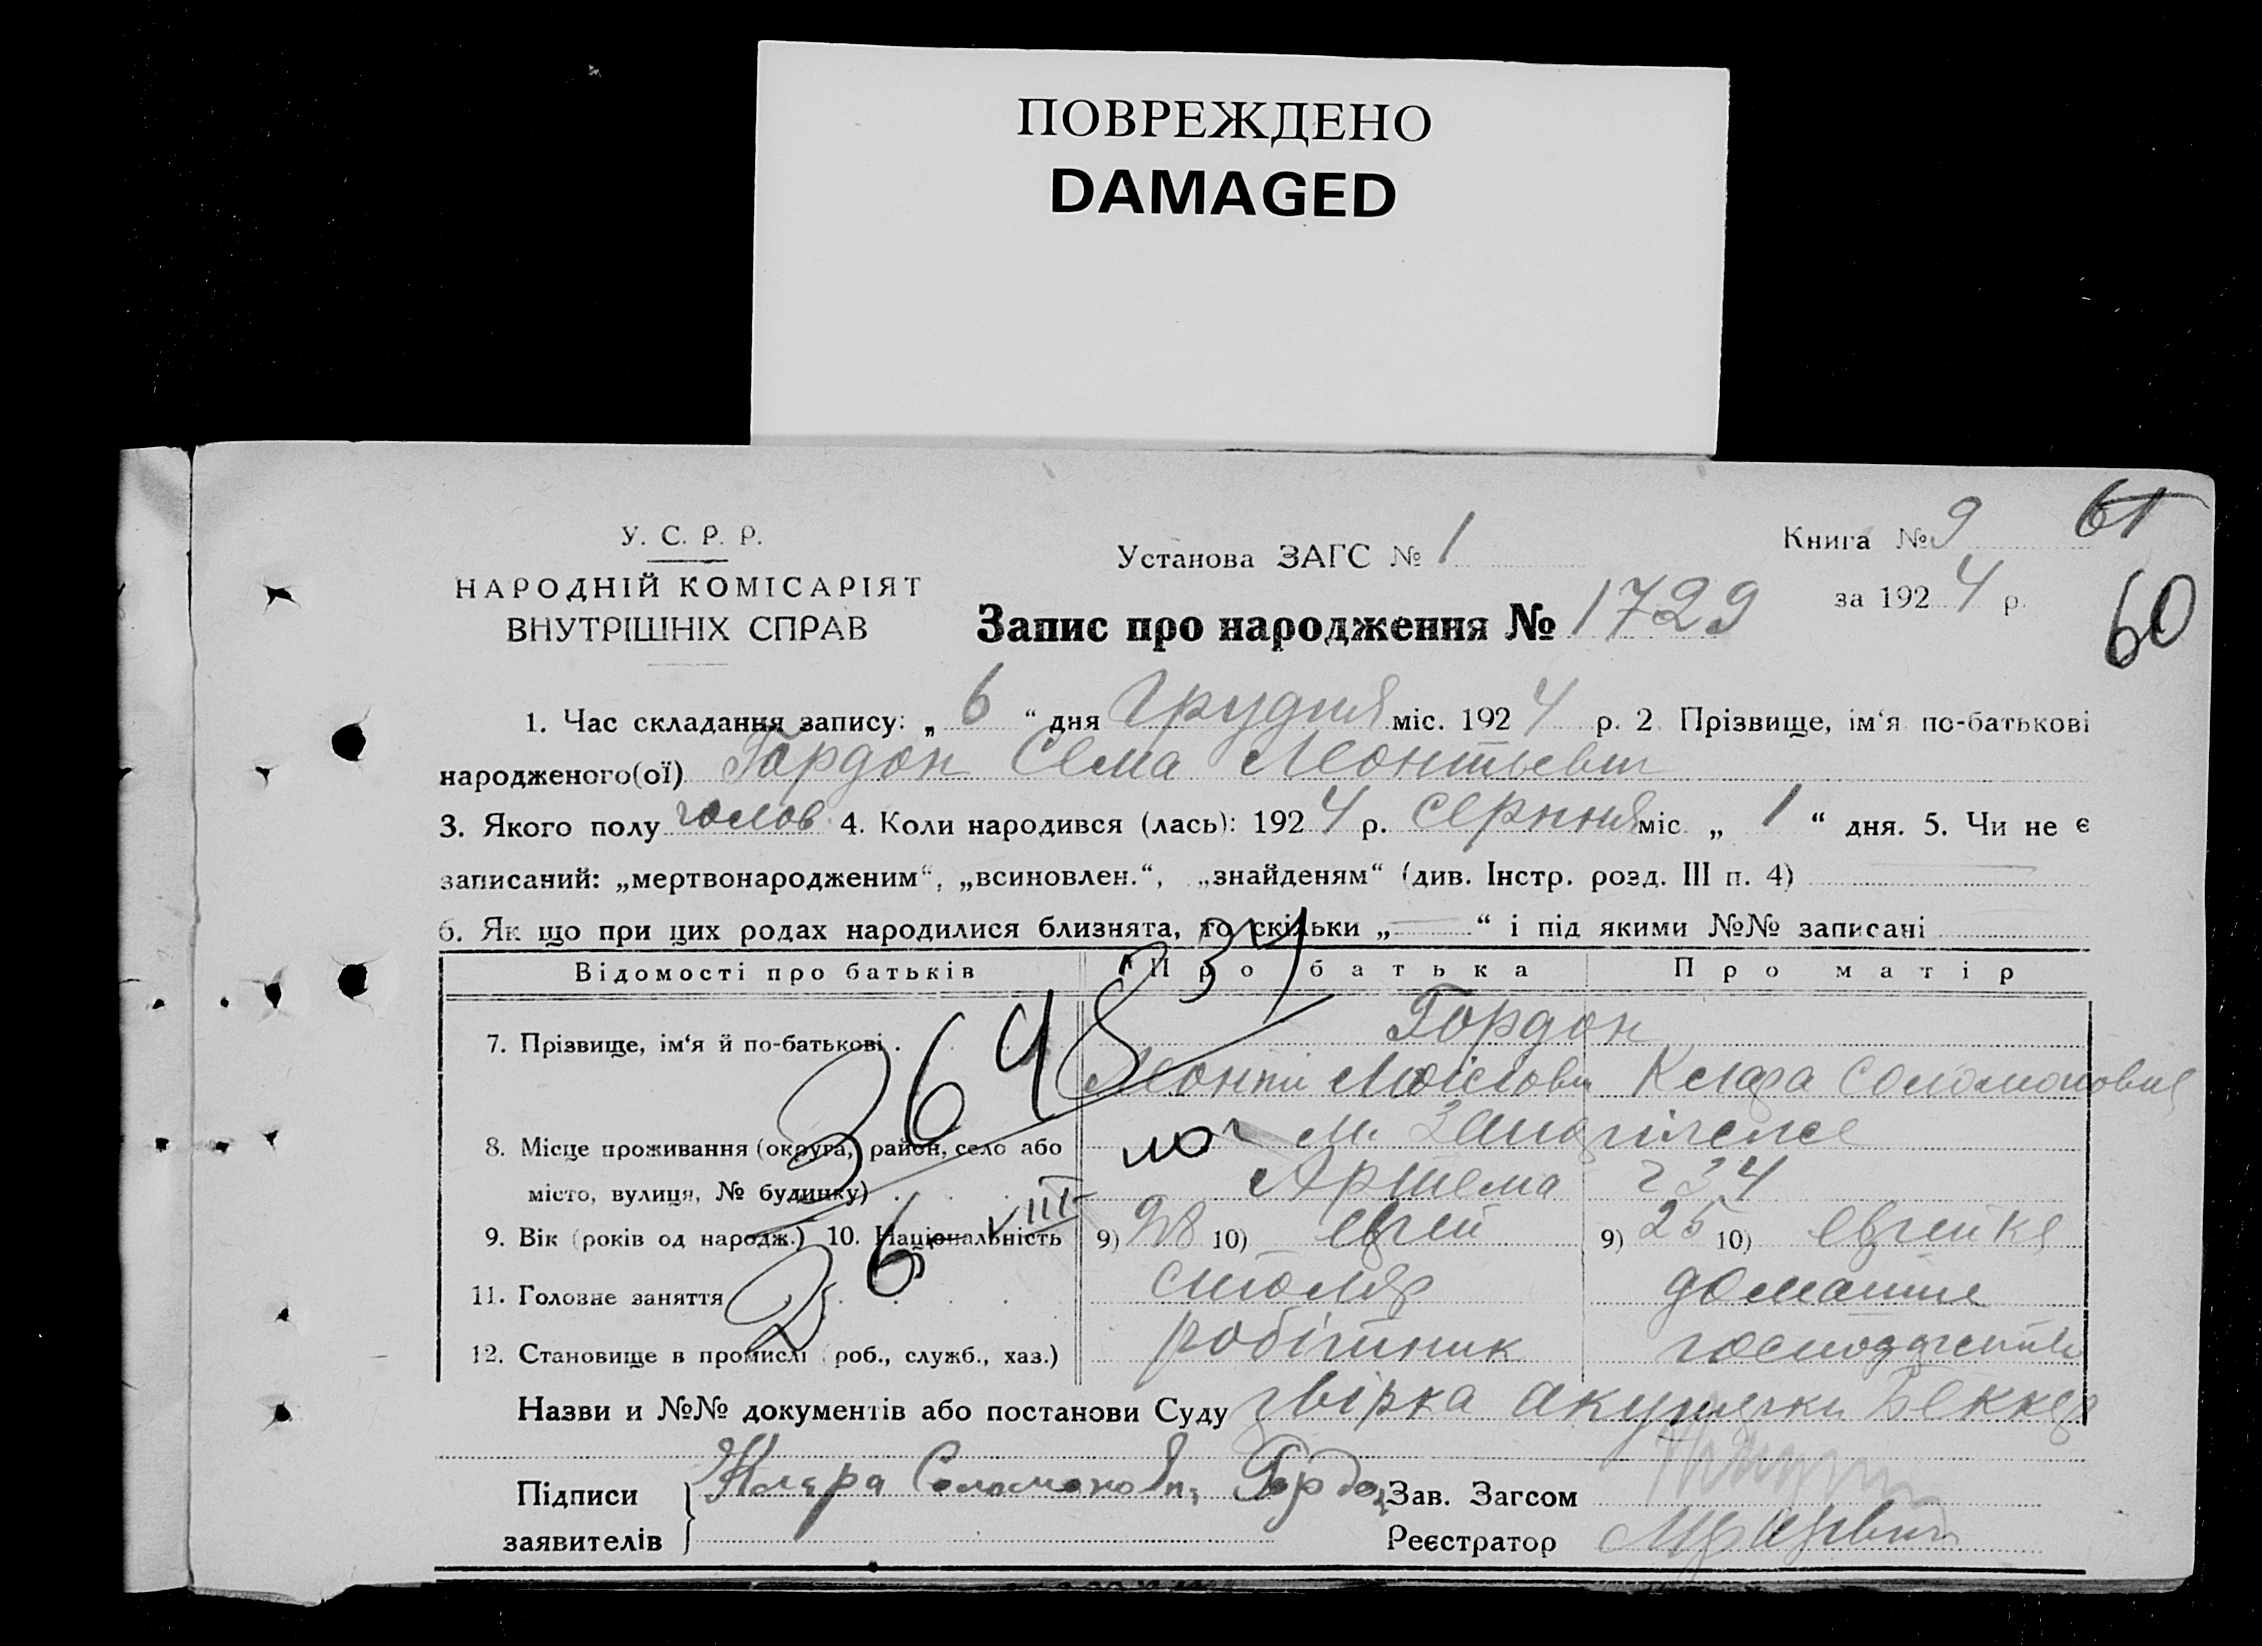 ПОВРЕЖДЕНО
DAMAGED
У. С. Р. Р.
НАРОДНІЙ КОМІСАРІЯТ
ВНУТРІШНІХ СПРАВ
Установа ЗАГС № 1
Книга № 9
61
за 1924 р.
60
Запис про народження № 1729
1. Час складання запису: „ 6 “ дня Грудня міс. 1924 р. 2. Прізвище, ім‘я по-батькові
народженого(ої) Гордон Сема Леонтьевич
3. Якого полу чолов. 4. Коли народився (лась): 1924 р. серпня міс. „ 1 “ дня. 5. Чи не є
записаний: „мертвонародженим“, „всиновлен.“, „знайденям“ (див. Інстр. розд. III п. 4)
6. Як що при цих родах народилися близнята, то скільки „ — “ і під якими №№ записані
Відомості про батьків Про батька Про матір
7. Прізвище, ім‘я й по-батькові . Гордон
Леонтій Мойсіович Клара Соломоновна
8. Місце проживання (округа, район, село або м.
місто, вулиця, № будинку) Артема 34
9. Вік (років од народж.) 10. Національність 9) 28 10) еврей 9) 25 10) еврейка
11. Головне заняття столяр домашне
12. Становище в промислі (роб., служб., хаз.) робітник господарство
Назви и №№ документів або постанови Суду звірка акушерки Беккер
Підписи Клара Соломоновна Гордон Зав. Загсом
заявителів Реєстратор
3648
31
26 VIII